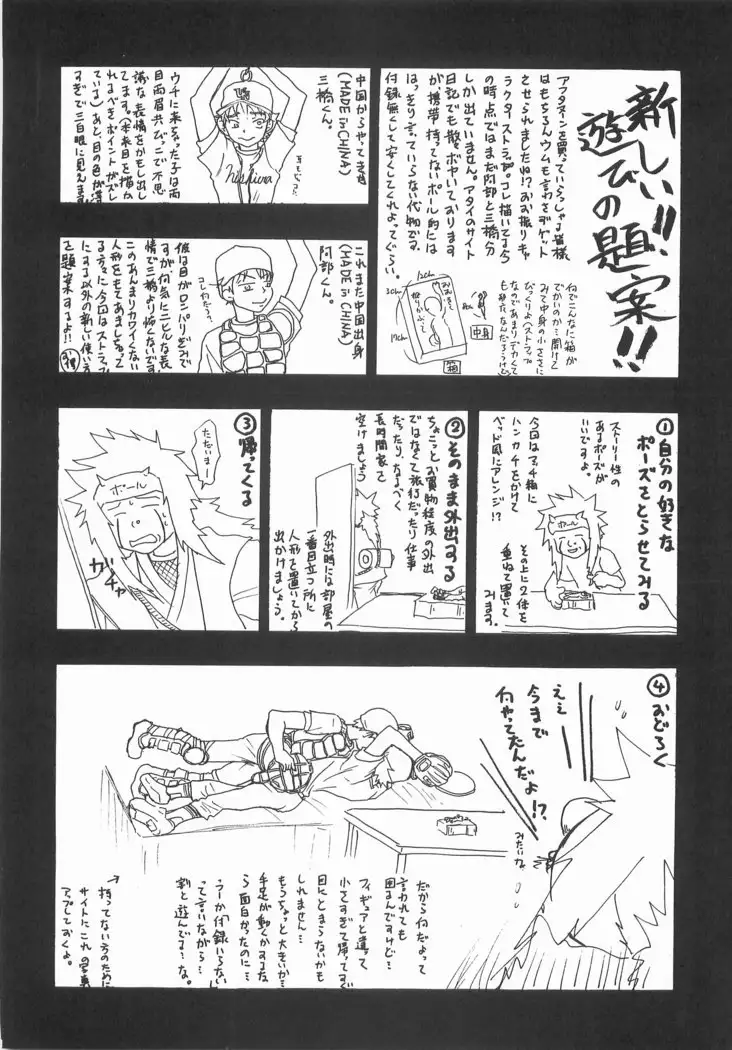 新しい!!
遊びの題案!!
アフタヌーンを買っていらっしゃる皆様
はもちろんウムも言わさずゲット
させられましたね!?おお振りキャ
ラクターストラップ。コレ描いてる今
の時点ではまだ阿部と三橋分
しか出ていません。アタイのサイト
日記でも散々ボヤいております
が携帯持ってないポール的には
はっきり言っていらない代物です。
付録無くして安くしてくれよってぐらい。
何でこんなに箱が
でかいのか…開けて
みて中身の小ささに
びっくりよ(ストラップ
なのであまりデカくて
12cm
3cm
17cm
箱
中身
中国からやってきた
(MADE in CHINA)
三橋くん。
Mihashi
ウチに来なった子は両
目両眉共ぴっこで不思
議な表情をかもし出し
てます。(本来目を描か
れるべきポイントがズレ
ている)あと、目の色が薄
すぎで三白眼に見えます
これまた中国出身
(MADE in CHINA)
阿部くん。
コレ何だろう?
彼は目がロンパリぎみで
すが、何気にニヒルな表
情で三橋より怖くないです
このあんまりカワイくない
人形をもてあましちゃって
る方々に今回はストラップ
にする以外の新しい使い方
を題案するよ!!
①自分の好きな
ポーズをとらせてみる
ストーリー性の
あるポーズが
いいですよ。
今回はマッチ箱に
ハンカチをかけて
ベッド風にアレンジ!?
その上に2体を
重ねて置いて
みます。
ポール
②そのまま外出する
ちょこっとお買物程度の外出
ではなくて旅行だったり仕事
だったり、なるべく
長時間家を
空けましょう
外出時には部屋の
一番目立つ所に
人形を置いてから
出かけましょう。
③帰ってくる
ただいまー
ポール
ガチャ
④おどろく
ええ
今まで
何やってたんだよ!?
みたいな。
だから何だよって
言われても
困るんですけど…
フィギュアと違って
小さすぎて帰ってすぐ
目にとまらないかも
しれません…
もうちょっと大きいか…
手足が動くかするな
ら面白かったのに…
つーか付録いらない
って言いながら…
割と遊んでる…な。
↑
持ってない方のために
サイトにこれの写真
アップしておくよ。